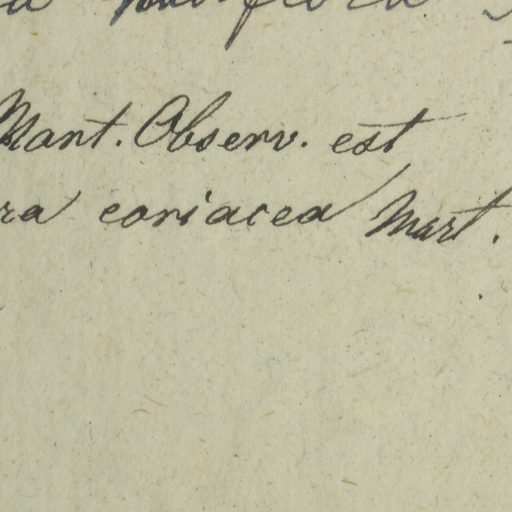 Mart. Observ. est
ra coriacea Mart.